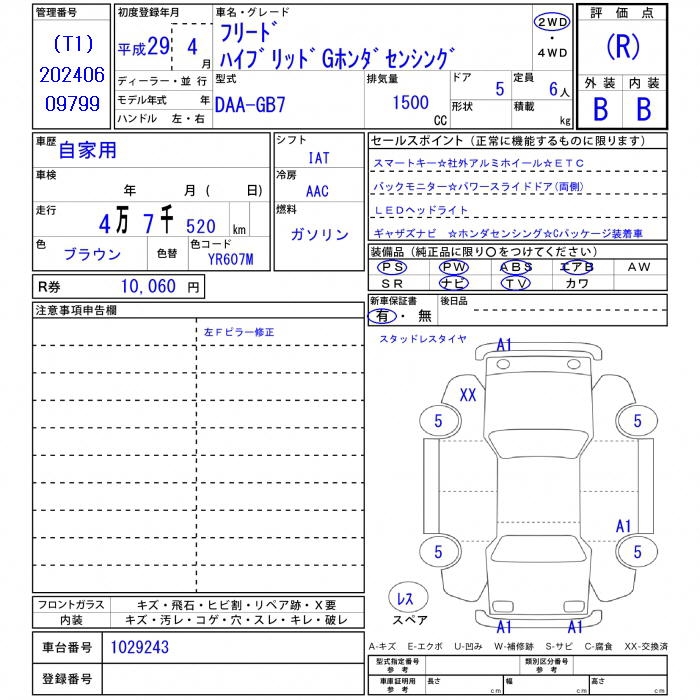 管理番号
(T1)
202406
09799
初度登録年月
平成29年 4月
車名・グレード
フリード
ハイブリッドGホンダセンシング
2WD
・
4WD
評価点
(R)
外装 内装
B B
ディーラー・並行
モデル年式 年
ハンドル 左・右
型式
DAA-GB7
排気量
1500
CC
ドア 5
形状
定員 6人
積載 kg
車歴 自家用
車検
年 月( 日)
走行
4万 7千 520 km
色
ブラウン
色替
色コード
YR607M
シフト
IAT
冷房
AAC
燃料
ガソリン
R券 10,060 円
セールスポイント(正常に機能するものに限ります)
スマートキー☆社外アルミホイール☆ETC
バックモニター☆パワースライドドア(両側)
LEDヘッドライト
ギャザズナビ ☆ホンダセンシング☆Cパッケージ装着車
装備品(純正品に限り〇をつけてください)
PS PW ABS エアB AW
SR ナビ TV カワ
新車保証書
有・無
後日品
注意事項申告欄
左Fピラー修正
スタッドレスタイヤ
A1
XX
5 5
A1
5 5
レス
スペア
A1 A1
フロントガラス キズ・飛石・ヒビ割・リペア跡・X要
内装 キズ・汚レ・コゲ・穴・スレ・キレ・破レ
車台番号 1029243
登録番号
A-キズ E-エクボ U-凹み W-補修跡 S-サビ C-腐食 XX-交換済
型式指定番号
参考
類別区分番号
参考
車庫証明用
参考
長さ cm
幅 cm
高さ cm